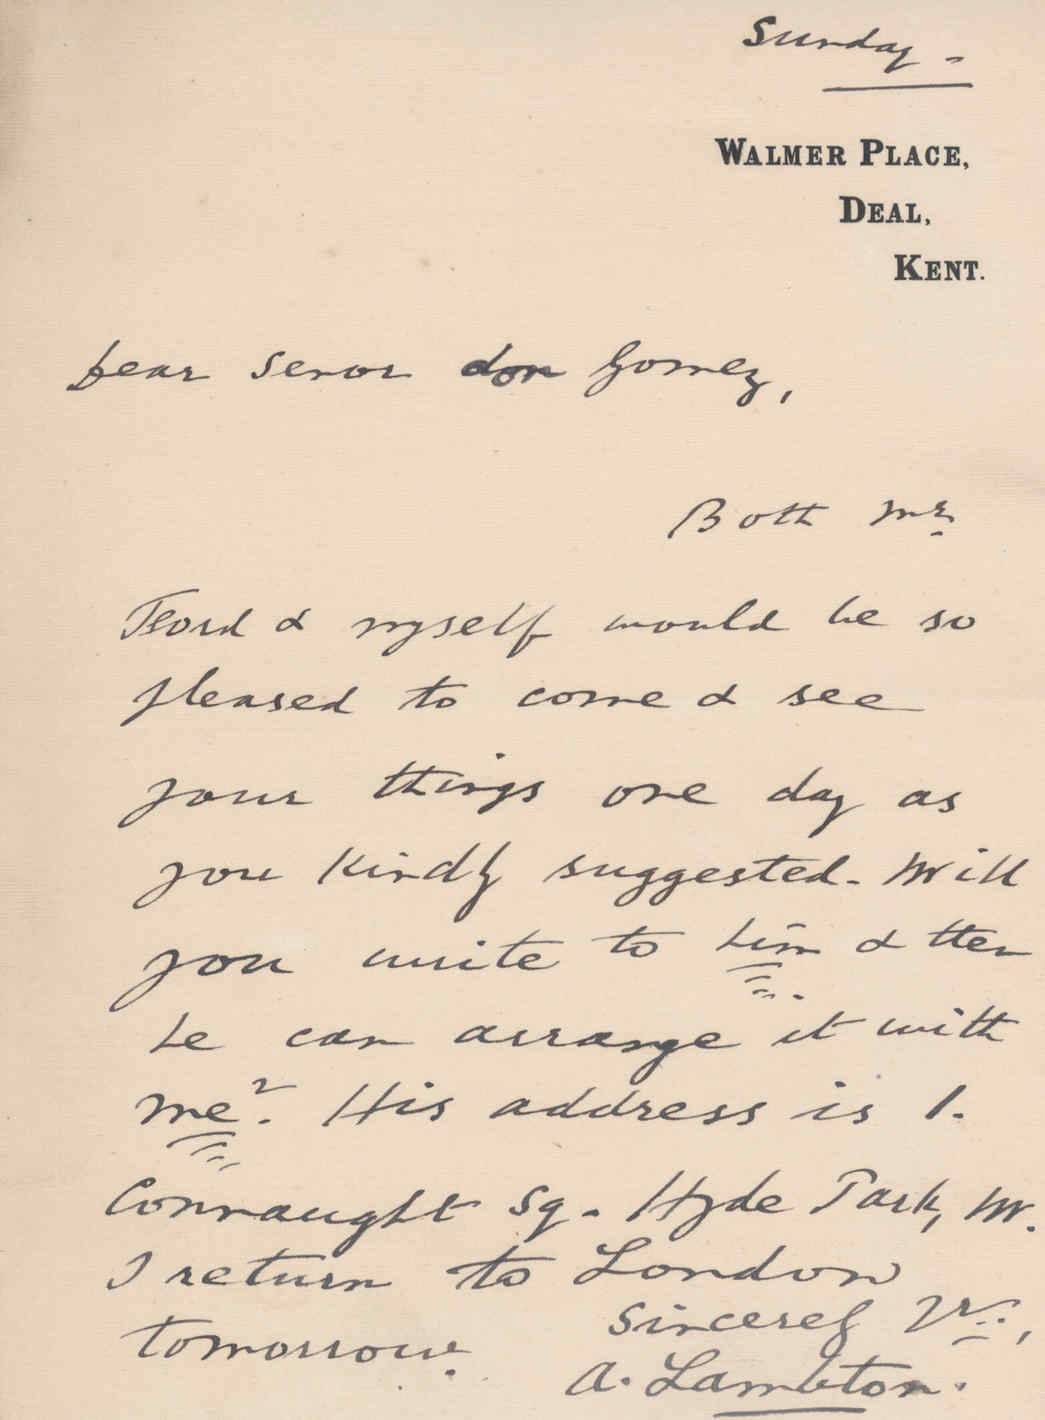 Sunday -
WALMER PLACE,
DEAL,
KENT.
Dear Senor don Gomez,
Both Mr.
& myself would be so
pleased to come & see
your things one day as
you kindly suggested. Will
you write to him & then
he can arrange it with
me?. His address is 1.
Connaught Sq. Hyde Park, W.
I return to London
tomorrow.
Sincerely Yrs.,
A. Lambton.